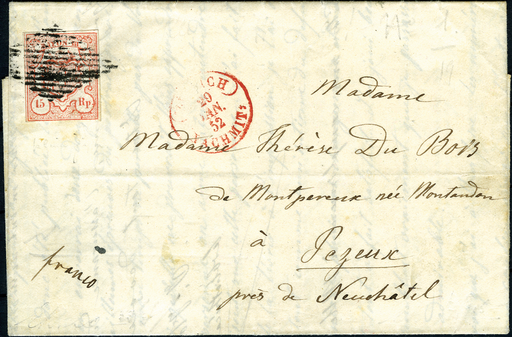 15 Rp
20
JAN.
52
Madame
Madame Thérèse Du Bois
de Montpereux née Montandon
à
Pezeux
près de Neuchâtel
franco